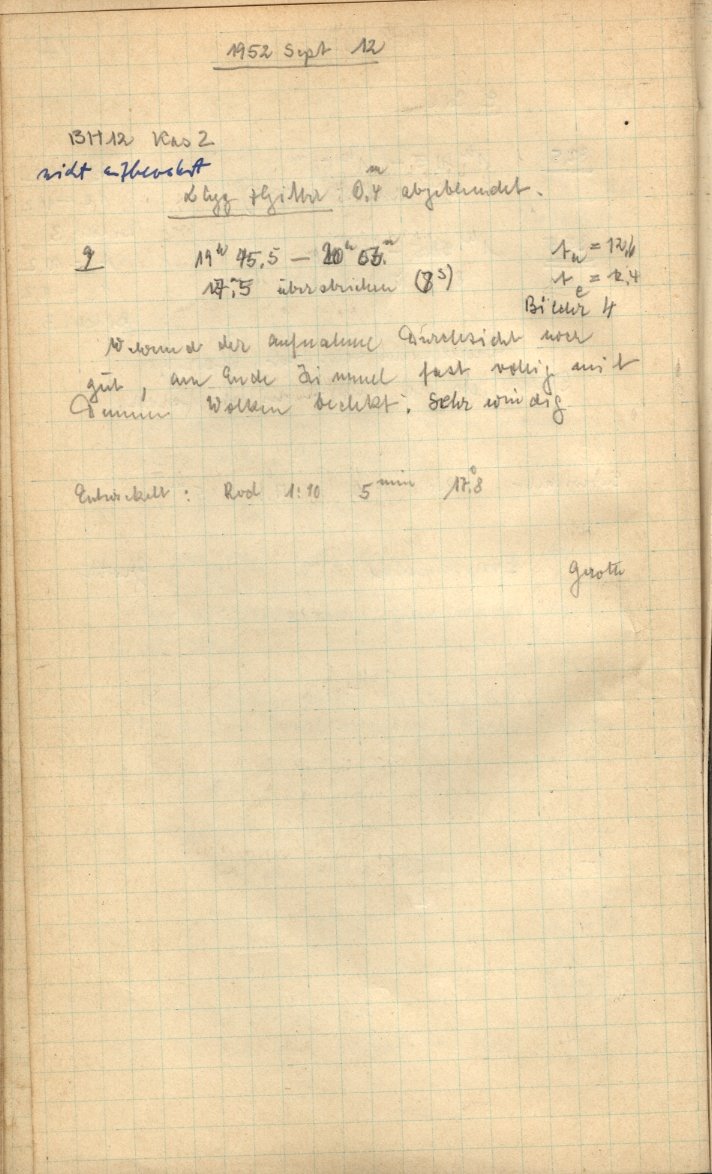 1952 Sept 12
BH12 Kas 2
nicht aufbewahrt
+ Gitter 0,4 m abgeblendet.
19h 45,5 — 20h
17,5 überstrichen (8s)
= 12,6
te = 12,4
Bilder 4
Während der Aufnahme Durchsicht noch
gut, am Ende Himmel fast völlig mit
Dünnen Wolken bedekt. Sehr windig
Entwickelt: Rod 1:10 5 min 17,8
Groth